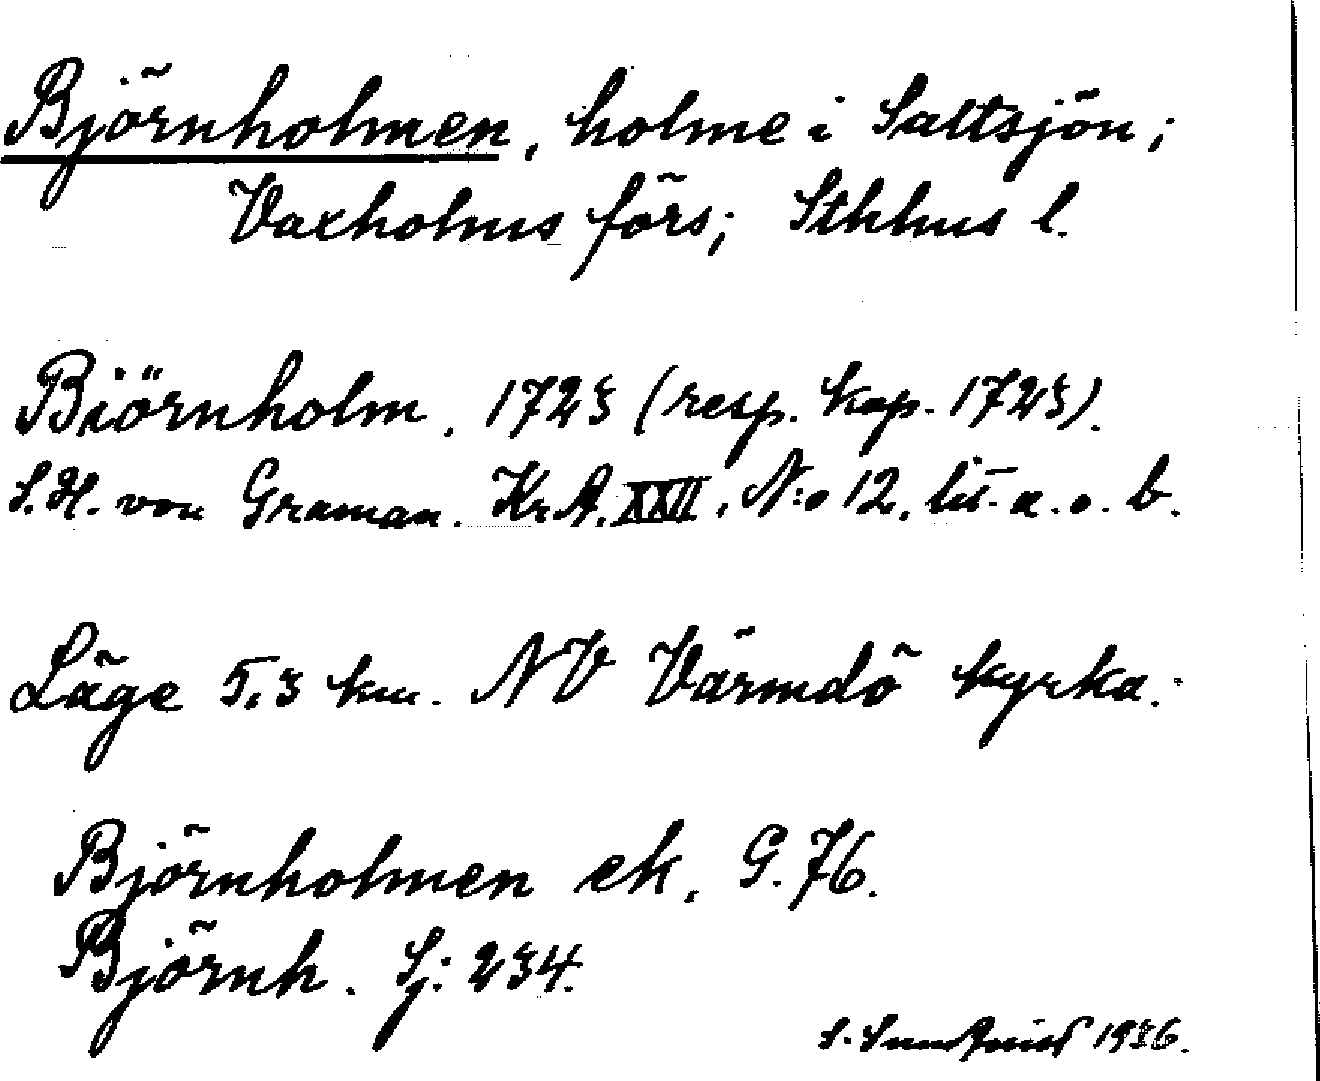 Björnholmen, holme i Saltsjön;
Vaxholms förs; Sthlms l.
Biörnholm. 1723 (resp. kop. 1723).
S.H. von Graman. Kr.A. XXII, N:o 12. lit. a. o. b.
Läge 5,3 km. NV Värmdö kyrka.
Björnholmen ek. G. 76.
Björnh. Sj: 234.
S. Sundquist 1936.